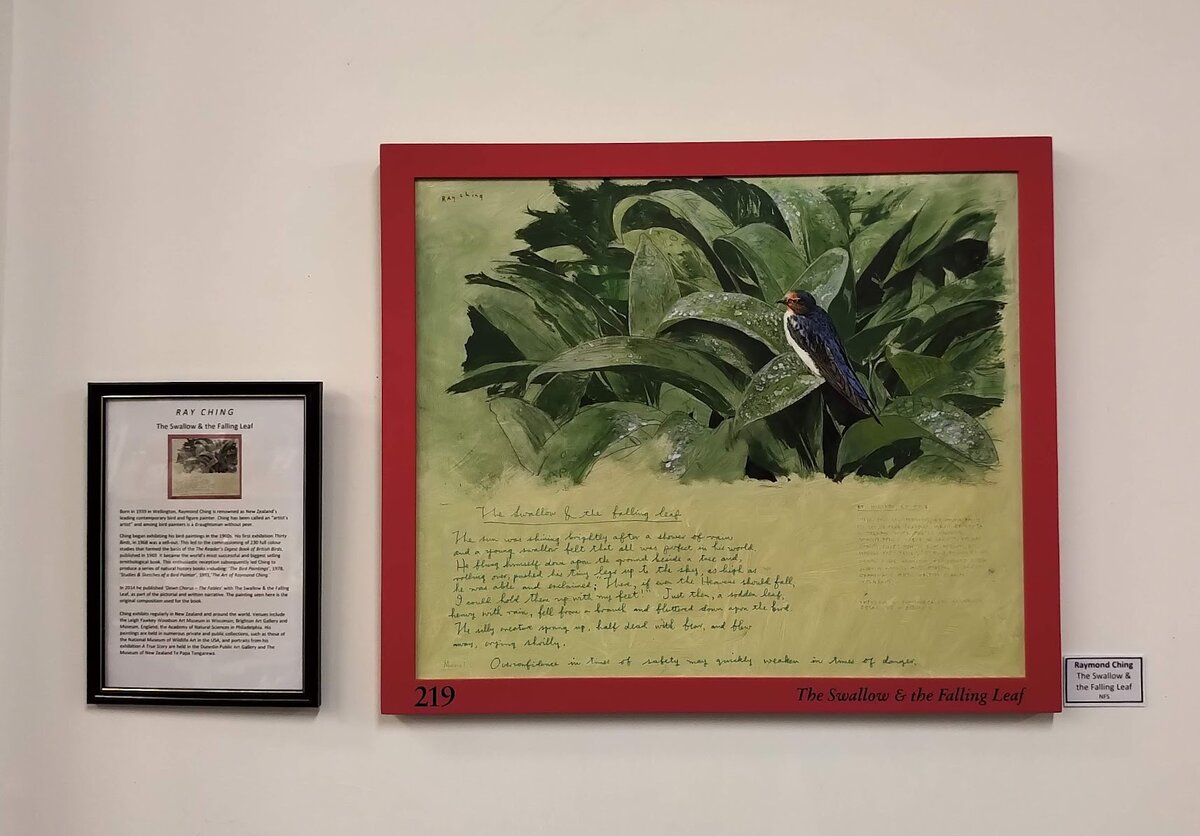 RAY CHING
The Swallow & the Falling Leaf
Born in 1939 in Wellington, Raymond Ching is renowned as New Zealand's
leading contemporary bird and figure painter. Ching has been called an "artist's
artist" and among bird painters is a draughtsman without peer.
Ching began exhibiting his bird paintings in the 1960s. His first exhibition Thirty
Birds, in 1968 was a sell-out. This led to the commissioning of 230 full colour
studies that formed the basis of the The Reader's Digest Book of British Birds,
published in 1969. It became the world's most successful and biggest selling
ornithological book. This enthusiastic reception subsequently led Ching to
produce a series of natural history books including: 'The Bird Paintings', 1978,
'Studies & Sketches of a Bird Painter', 1981, 'The Art of Raymond Ching'.
In 2014 he published 'Dawn Chorus – The Fables' with The Swallow & the Falling
Leaf, as part of the pictorial and written narrative. The painting seen here is the
original composition used for the book.
Ching exhibits regularly in New Zealand and around the world. Venues include
the Leigh Yawkey Woodson Art Museum in Wisconsin, Brighton Art Gallery and
Museum, England, the Academy of Natural Sciences in Philadelphia. His
paintings are held in numerous private and public collections, such as those of
the National Museum of Wildlife Art in the USA, and portraits from his
exhibition A True Story are held in the Dunedin Public Art Gallery and The
Museum of New Zealand Te Papa Tongarewa.
Ray Ching
The Swallow & the falling leaf
The sun was shining brightly after a shower of rain
and a young swallow felt that all was perfect in his world.
He flung himself down upon the ground beside a tree and,
rolling over, pushed his tiny legs up to the sky, as high as
he was able and exclaimed; "Ha, if even the Heavens should fall,
I could hold them up with my feet!" Just then, a sodden leaf,
heavy with rain, fell from a branch and fluttered down upon the bird.
The silly creature sprang up, half dead with fear, and flew
away, crying shrilly.
Moral: Overconfidence in times of safety may quickly weaken in times of danger.
219
The Swallow & the Falling Leaf
Raymond Ching
The Swallow &
the Falling Leaf
NFS